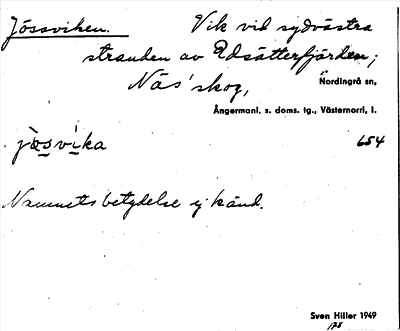 Jössviken. Vik vid sydvästra
stranden av Edsätterfjärden;
Näs' skog, Nordingrå sn,
Ångermanl. s. doms. tg., Västernorrl. l.
jö̀s̲vi̲ka 654
Namnets betydelse ej känd.
Sven Hiller 1949
178